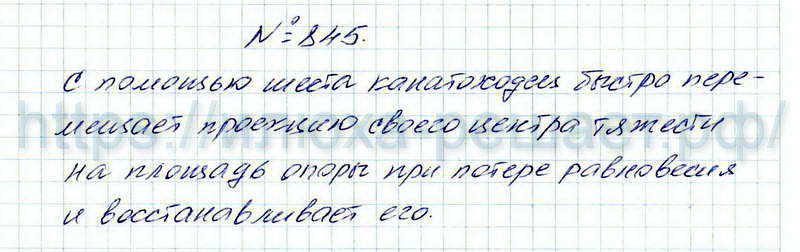 №845.
С помощью шеста канатоходец быстро пере-
мещает проекцию своего центра тяжести
на площадь опоры при потере равновесия
и восстанавливает его.